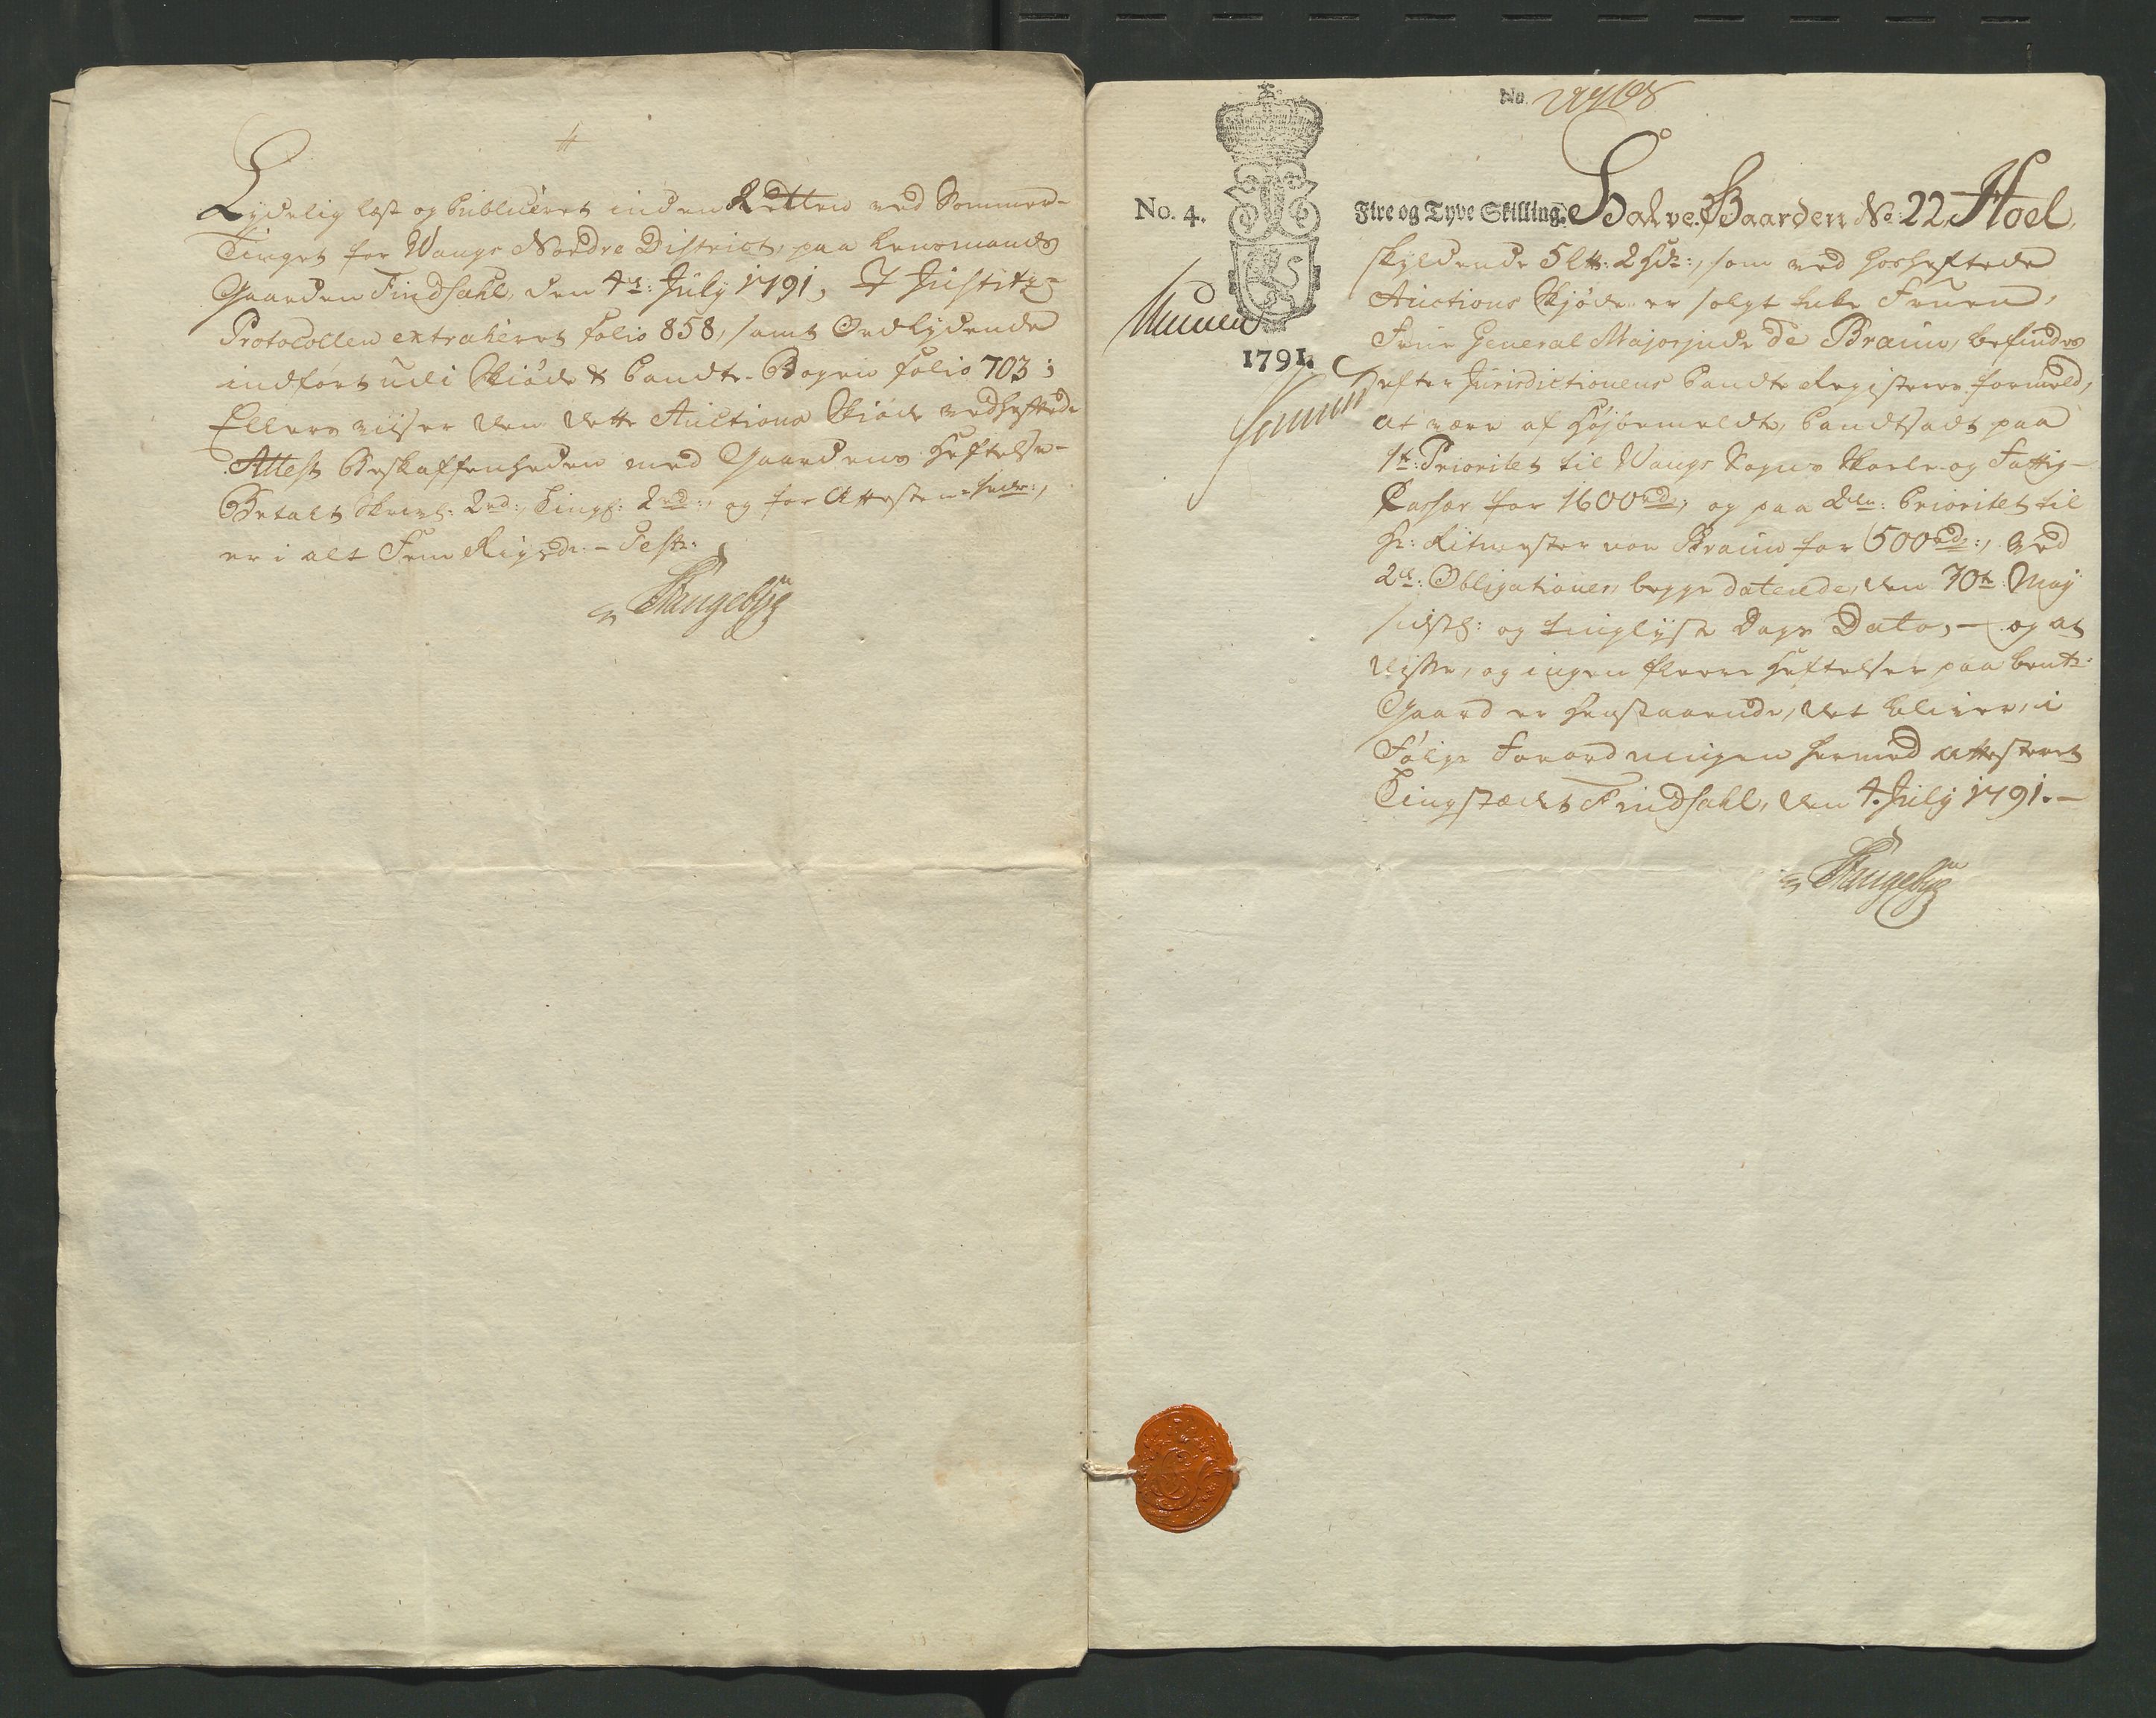 Lydelig læst og Publiceret inden Retten ved Sommer-
Tinget for Wangs Nordre District, paa Lensmands
Gaarden Findsahl, den 4de: July 1791, I Justitz-
Protocollen extraheret folio 858, samt Ordlydende
indført udi Skiøde & Pandte-Bogen folio 703;
Ellers viiser den dette Auctions Skiøde vedheftede
Attest Beskaffenheden med Gaardens Heftelse-
Betalt Skrivf: 2rd:, Tingf: 2rd:, og for Attesten
er i alt Fem Rigsdr:- Test:
Stangebye
No.
No. 4. Fire og Tyve Skilling. Halve Gaarden No: 22, Hoel,
skyldende 5 Lt: 2 Hdr:, som ved hosheftede
Auctions Skjøde er solgt til Fruen,
Frue General Majorinde de Braun, befindes
1791.
efter Jurisdictionens Pandte Registers formeld,
at være af Højbemeldte, Pandtsadt paa
1te: Prioritet til Wangs Sogns Skole og Fattig-
Casser for 1600rd:, og paa 2den: Prioritet til
Hr: Ritmester von Braun for 500rd:, ved
2de: Obligationer, begge daterede, den 30te: Maj
sidstl: og tinglyst Dags Dato, - og at
disse, og ingen fleere Heftelser paa bemte:
Gaard er henstaaende, det bliver, i
Følge Forordningen hermed attesteret
Tingstædet Findsahl, den 4. July 1791.-
Stangebye